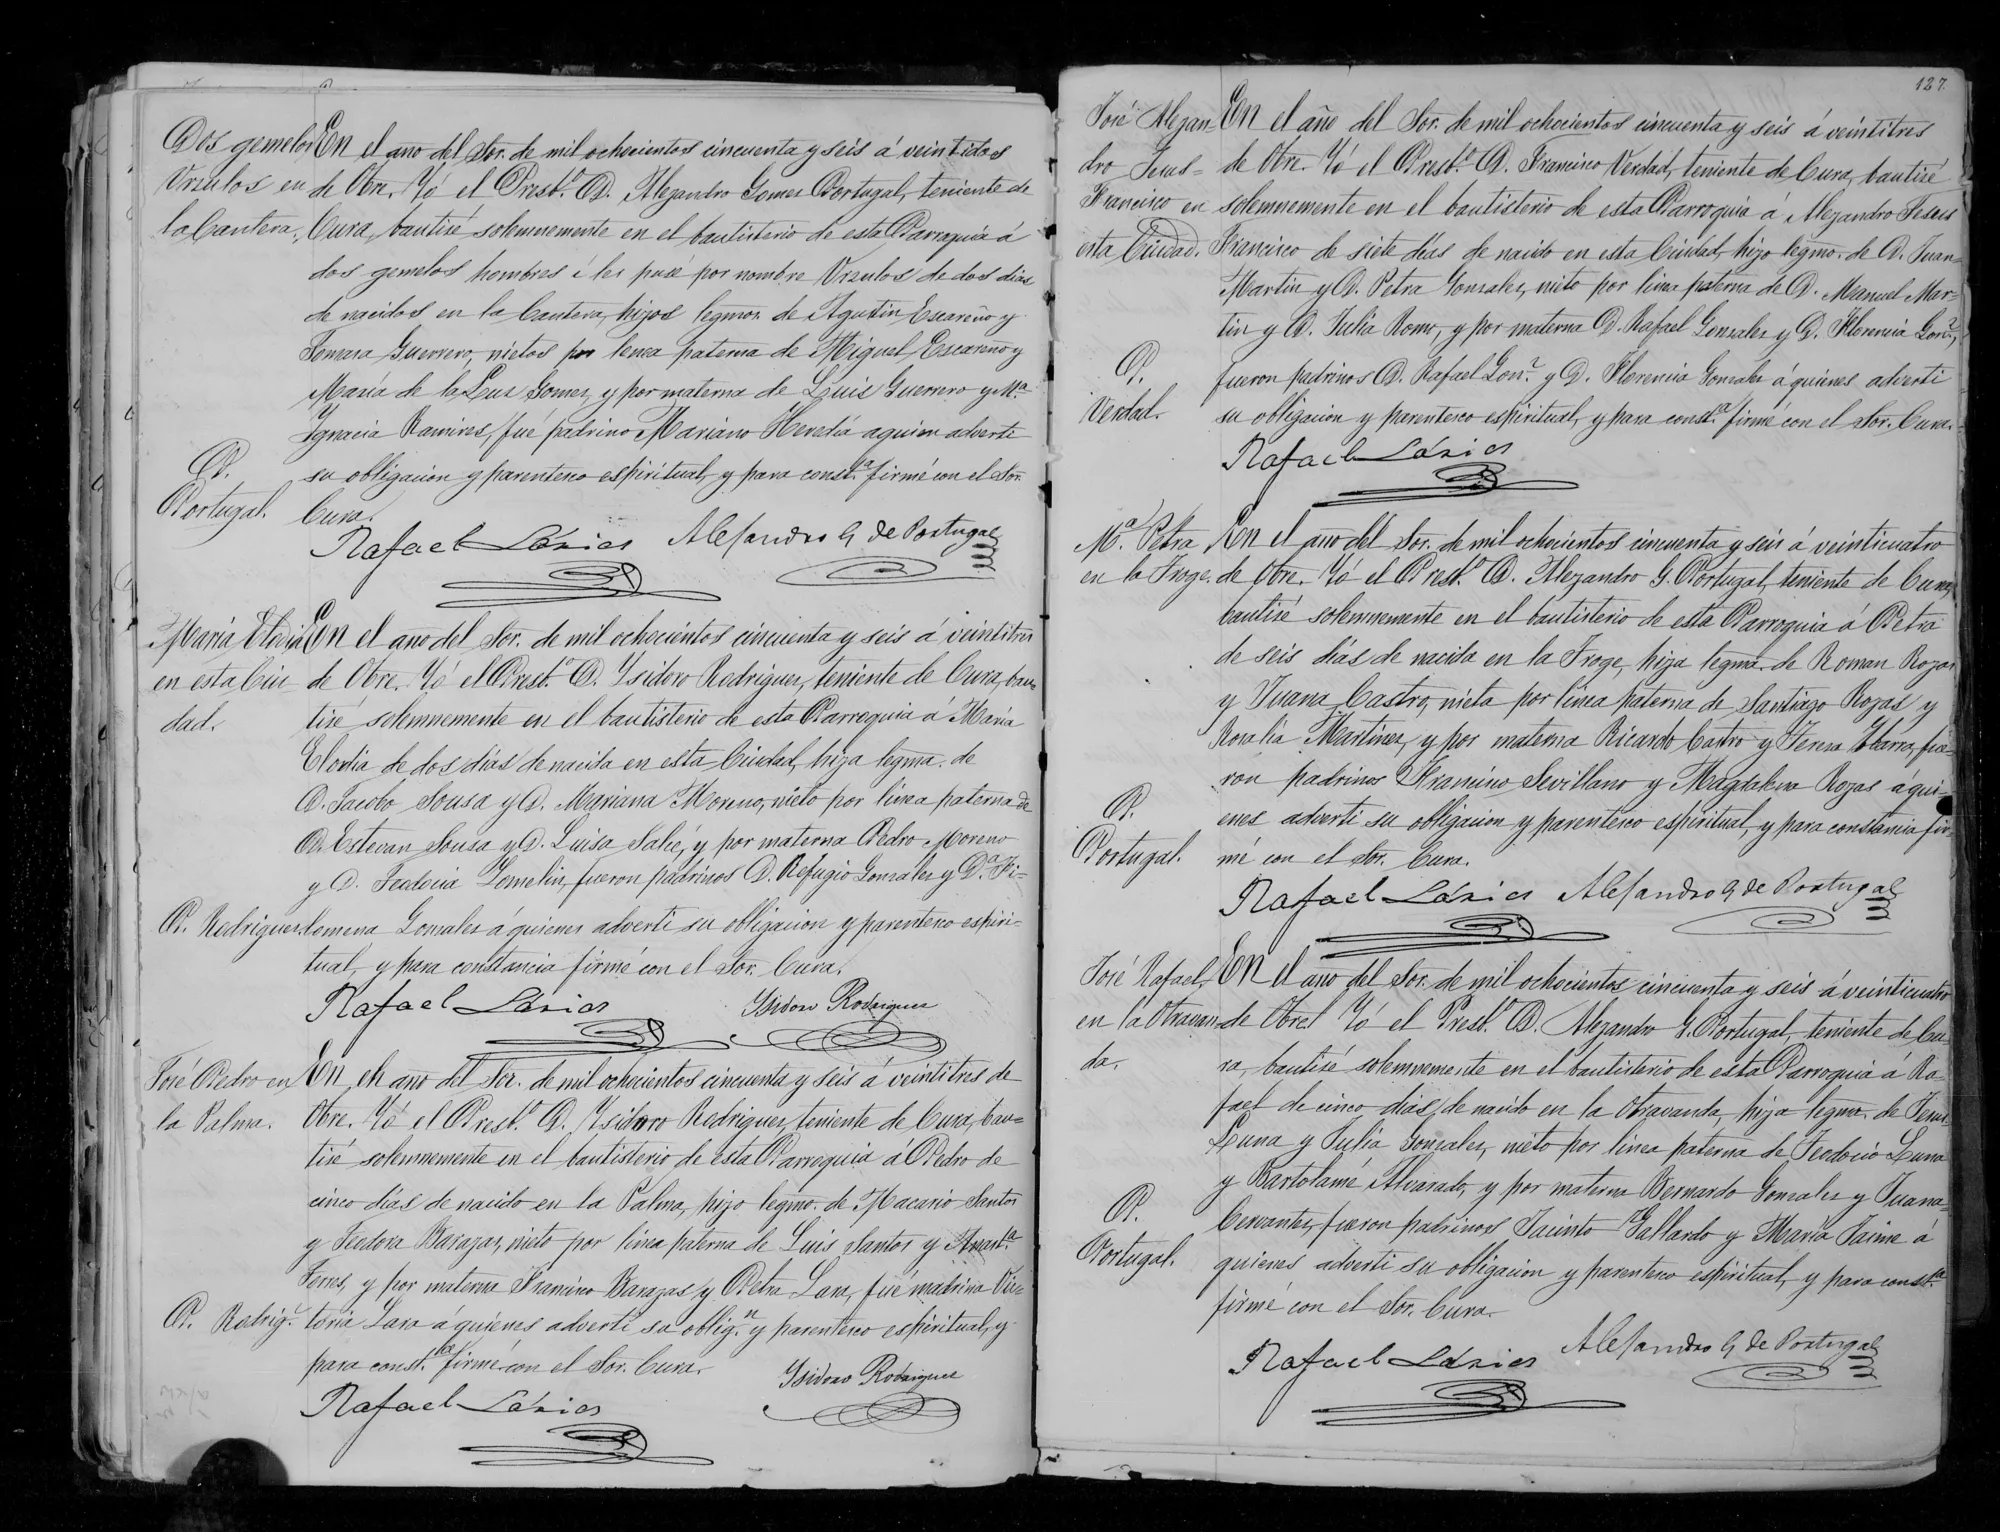 Dos gemelos
Urzulos en
la Cantera.
En el año del Sor. de mil ochocientos cincuenta y seis á veintidos
de Obre. Yó el Presb.o D. Alejandro Gomes Portugal, teniente de
Cura, bautisé solemnemente en el bautisterio de esta Parroquia á
dos gemelos hombres é les pusé por nombre Urzulos de dos días
de nacidos en la Cantera, hijos legmos. de Agustin Escareño y
Tomasa Guerrero, nietos por lenea paterna de Miguel Escareño y
María de la Luz Gomes, y por materna de Luis Guerrero y M.a
Ygnacia Ramires, fué padrino Mariano Heredia a quien adverti
su obligacion y parentesco espiritual, y para const.a firmé con el Sor.
Cura.
P.
Portugal.
Rafael Lários Alejandro G de Portugal
María Elodia
en esta Ciu
dad.
En el año del Sor. de mil ochocientos cincuenta y seis á veintitres
de Obre. Yó el Presb.o D. Ysidoro Rodriguez, teniente de Cura, bau-
tisé solemnemente en el bautisterio de esta Parroquia á María
Elodia de dos días de nacida en esta Ciudad, hija legma. de
D. Jacobo Sousa y D. Mariana Moreno, nieto por línea paterna de
D. Estevan Sousa y D. Luisa Salié, y por materna Pedro Moreno
y D. Teodocia Gomelin, fueron padrinos D. Refugio Gonzales y D.a Fi-
lomena Gonzales á quienes adverti su obligacion y parentesco espiri-
tual, y para constancia firmé con el Sor. Cura.
P. Rodriguez
Rafael Lários Ysidoro Rodriguez
José Pedro en
la Palma.
En el año del Sor. de mil ochocientos cincuenta y seis á veintitres de
Obre. Yó el Presb.o D. Ysidoro Rodriguez, teniente de Cura, bau-
tisé solemnemente en el bautisterio de esta Parroquia á Pedro de
cinco días de nacido en la Palma, hijo legmo. de Macario Santos
y Teodora Barajas, nieto por línea paterna de Luis Santos y Anast.a
Torres, y por materna Francisco Barajas y Petra Lara, fué madrina Vic-
toria Lara á quienes adverti su oblig.n y parentesco espiritual, y
para const.ia firmé con el Sor. Cura.
P. Rodrig.z
Rafael Lários Ysidoro Rodriguez
127.
José Alejan-
dro Jesus
Francisco en
esta Ciudad.
En el año del Sor. de mil ochocientos cincuenta y seis á veintitres
de Obre. Yó el Presb.o D. Francisco Verdad, teniente de Cura, bautisé
solemnemente en el bautisterio de esta Parroquia á Alejandro Jesus
Francisco de siete días de nacido en esta Ciudad, hijo legmo. de D. Juan
Martin y D. Petra Gonzales, nieto por línea paterna de D. Manuel Mar-
tin y D. Julia Romo, y por materna D. Rafael Gonzales y D. Florencia Gon.z,
fueron padrinos D. Rafael Gon.z y D. Florencia Gonzales á quienes adverti
su obligacion y parentesco espiritual, y para const.a firmé con el Sor. Cura.
P.
Verdad.
Rafael Lários
M.a Petra
en la Troge.
En el año del Sor. de mil ochocientos cincuenta y seis á veinticuatro
de Obre. Yó el Presb.o D. Alejandro G. Portugal, teniente de Cura,
bautisé solemnemente en el bautisterio de esta Parroquia á Petra
de seis días de nacida en la Troge, hija legma. de Roman Rojas
y Juana Castro, nieta por línea paterna de Santiago Rojas y
Rosalia Martinez, y por materna Ricardo Castro y Teresa Ybarra, fue-
ron padrinos Framino Sevillano y Magdalena Rojas á qui-
enes adverti su obligacion y parentesco espiritual, y para constancia fir-
mé con el Sor. Cura.
P.
Portugal.
Rafael Lários Alejandro G de Portugal
José Rafael,
en la Otravan-
da.
En el año del Sor. de mil ochocientos cincuenta y seis á veinticuatro
de Obre. Yó el Presb.o D. Alejandro G. Portugal, teniente de Cu
ra, bautisé solemnemente en el bautisterio de esta Parroquia á Ra-
fael de cinco días de nacido en la Otravanda, hija legma. de Jesus
Luna y Julia Gonzales, nieto por línea paterna de Teodocio Luna
y Bartolamé Alvarado, y por materna Bernardo Gonzales y Juana
Cervantes, fueron padrinos Jacinto Gallardo y María Jaime á
quienes adverti su obligacion y parentesco espiritual, y para const.ia
firmé con el Sor. Cura.
P.
Portugal.
Rafael Lários Alejandro G de Portugal